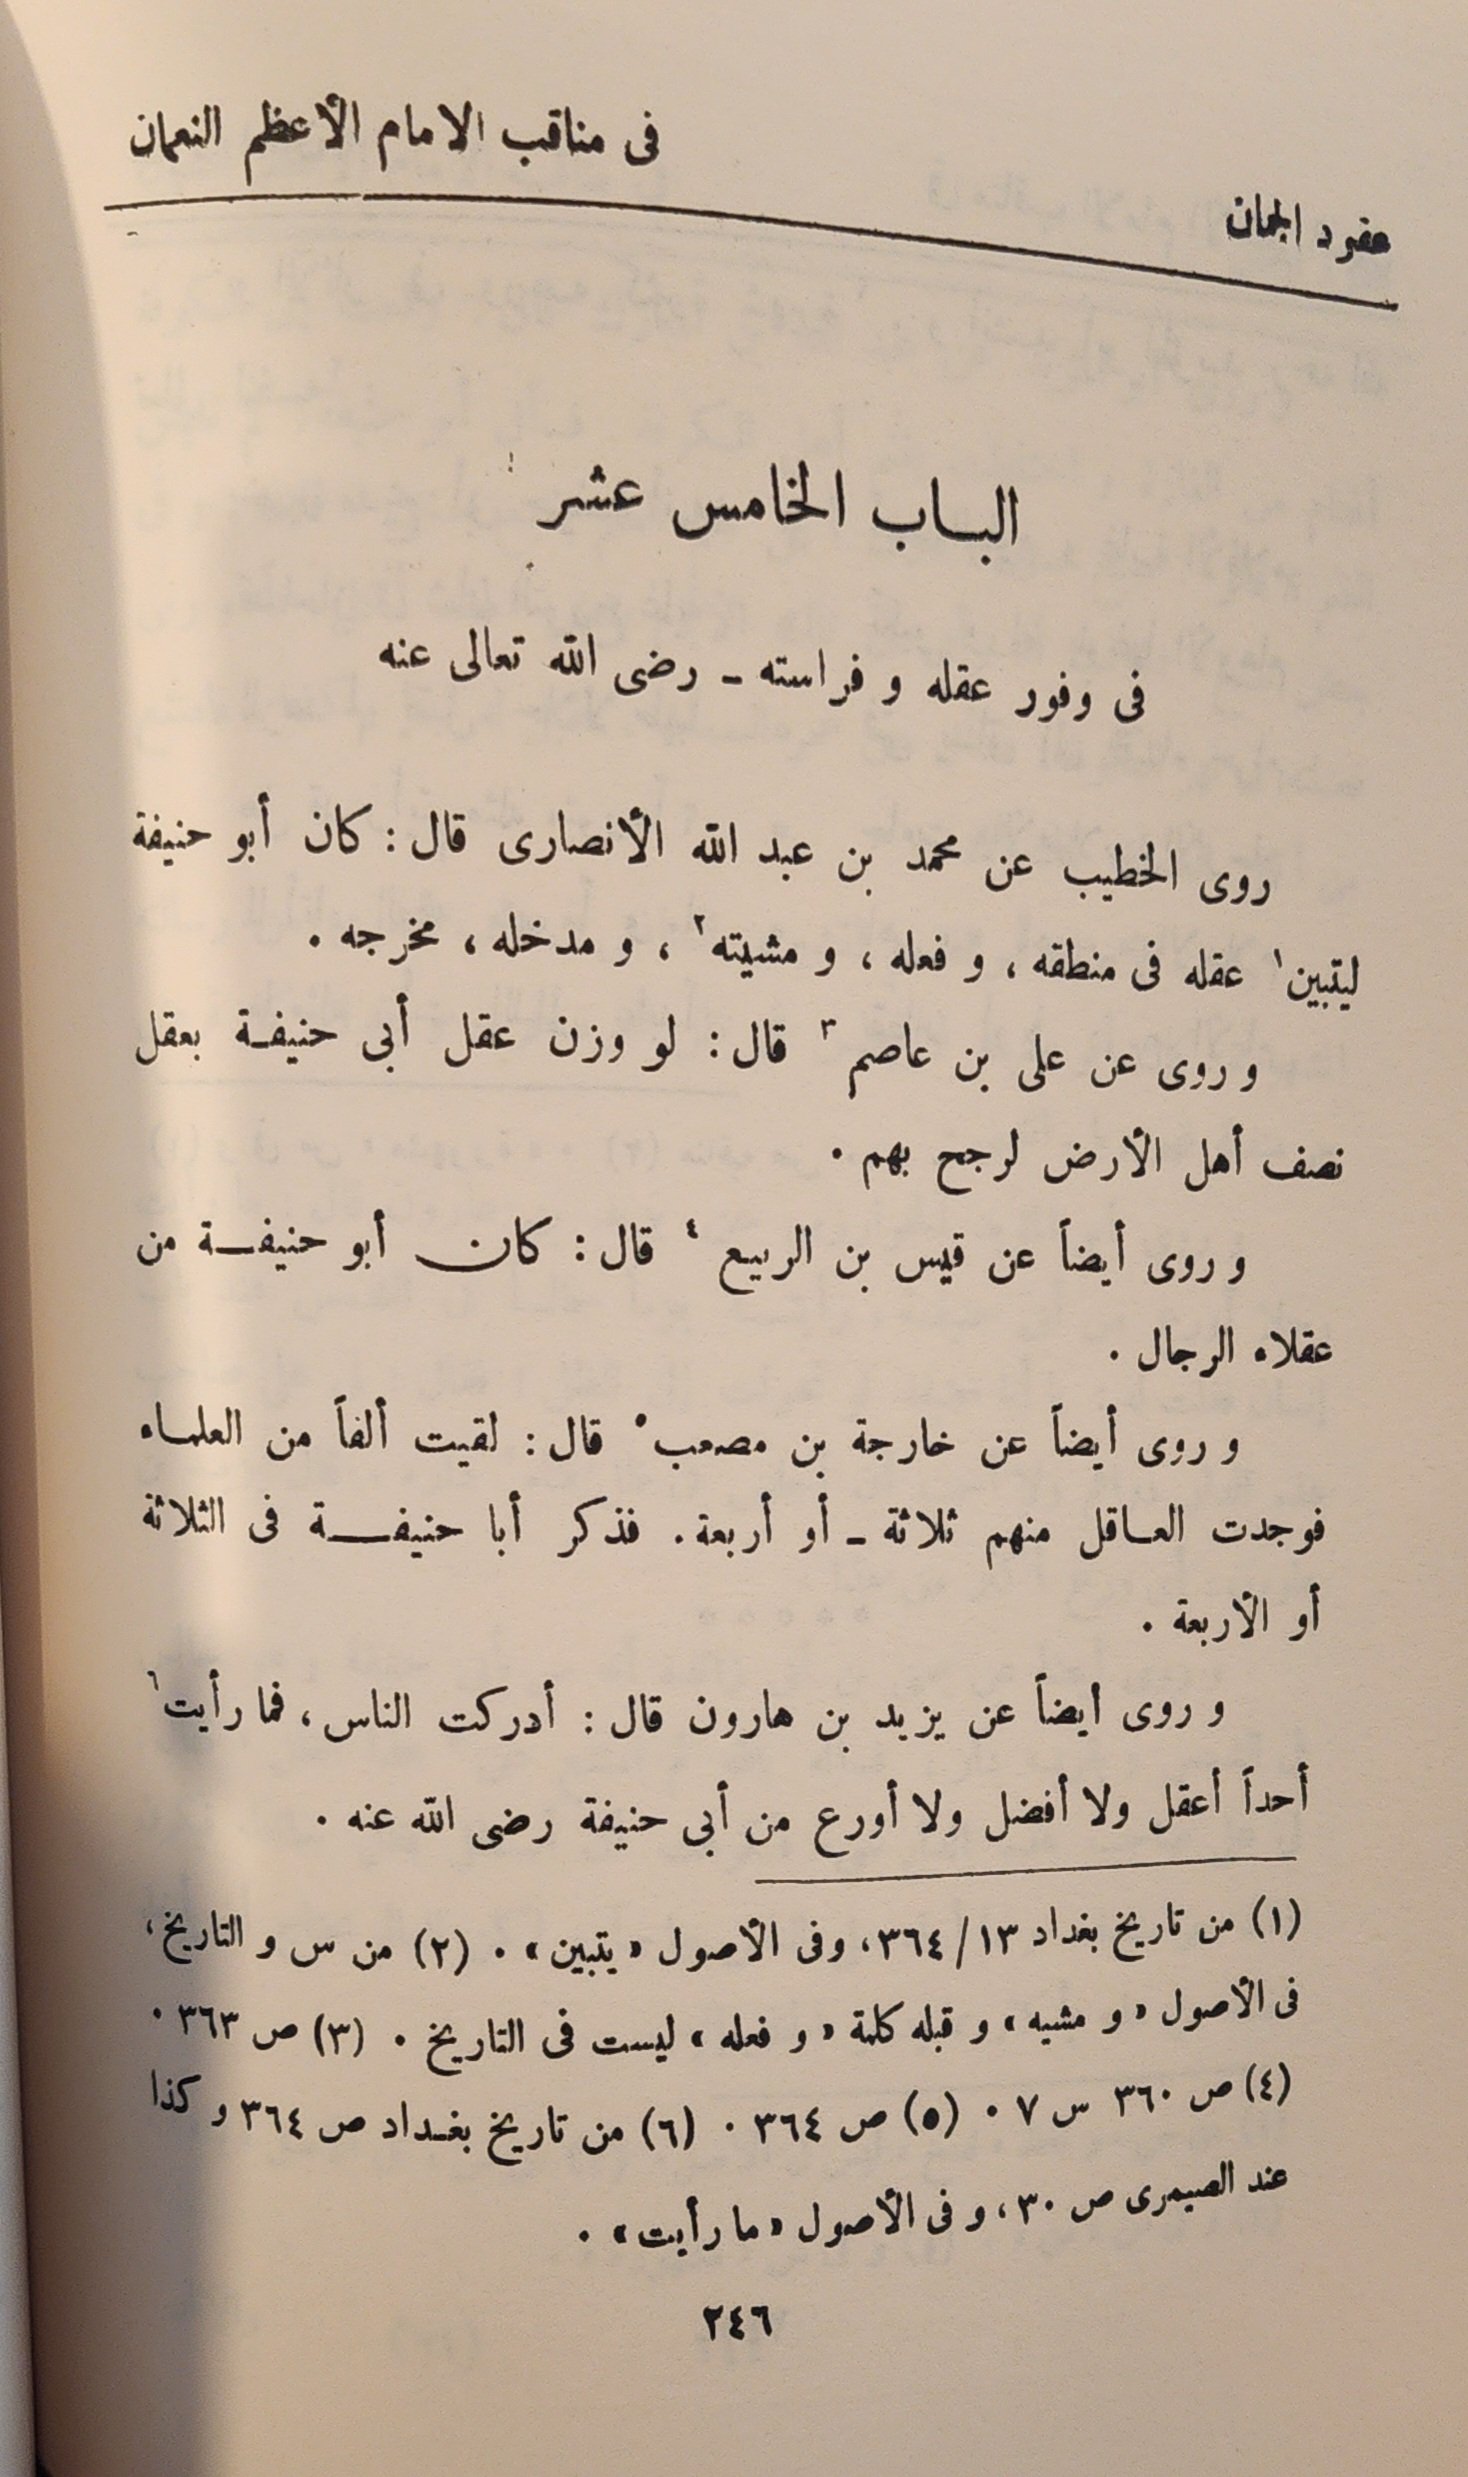 عقود الجمان
فى مناقب الامام الأعظم النعمان
الباب الخامس عشر
فى وفور عقله و فراسته ـ رضى الله تعالى عنه
روى الخطيب عن محمد بن عبد الله الأنصارى قال : كان أبو حنيفة
ليتبين١ عقله فى منطقه ، و فعله ، و مشيته٢ ، و مدخله ، مخرجه .
و روى عن على بن عاصم ٣ قال : لو وزن عقل أبى حنيفة بعقل
نصف أهل الأرض لرجح بهم .
و روى أيضاً عن قيس بن الربيع ٤ قال : كان أبو حنيفة من
عقلاء الرجال .
و روى أيضاً عن خارجة بن مصعب ٥ قال : لقيت ألفاً من العلماء
فوجدت العاقل منهم ثلاثة ـ أو أربعة . فذكر أبا حنيفة فى الثلاثة
أو الأربعة .
و روى أيضاً عن يزيد بن هارون قال : أدركت الناس ، فما رأيت٦
أحداً أعقل ولا أفضل ولا أورع من أبى حنيفة رضى الله عنه .
(١) من تاريخ بغداد ١٣/ ٣٦٤، وفى الأصول « يتبين » . (٢) من س و التاريخ ،
فى الأصول « و مشيه » و قبله كلمة « و فعله » ليست فى التاريخ . (٣) ص ٣٦٣ .
(٤) ص ٣٦٠ س ٧ . (٥) ص ٣٦٤ . (٦) من تاريخ بغداد ص ٣٦٤ و كذا
عند الصيمرى ص ٣٠ ، و فى الأصول « ما رأيت » .
٢٤٦